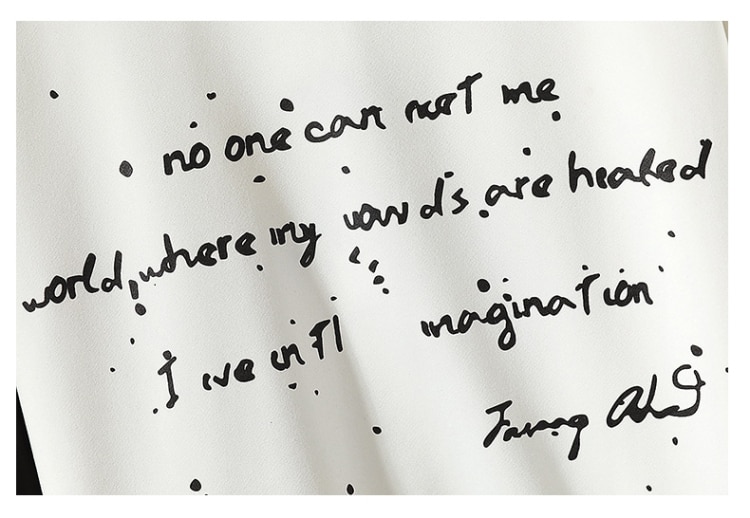 no one can met me
world, where my words are healed
I ive in imagination